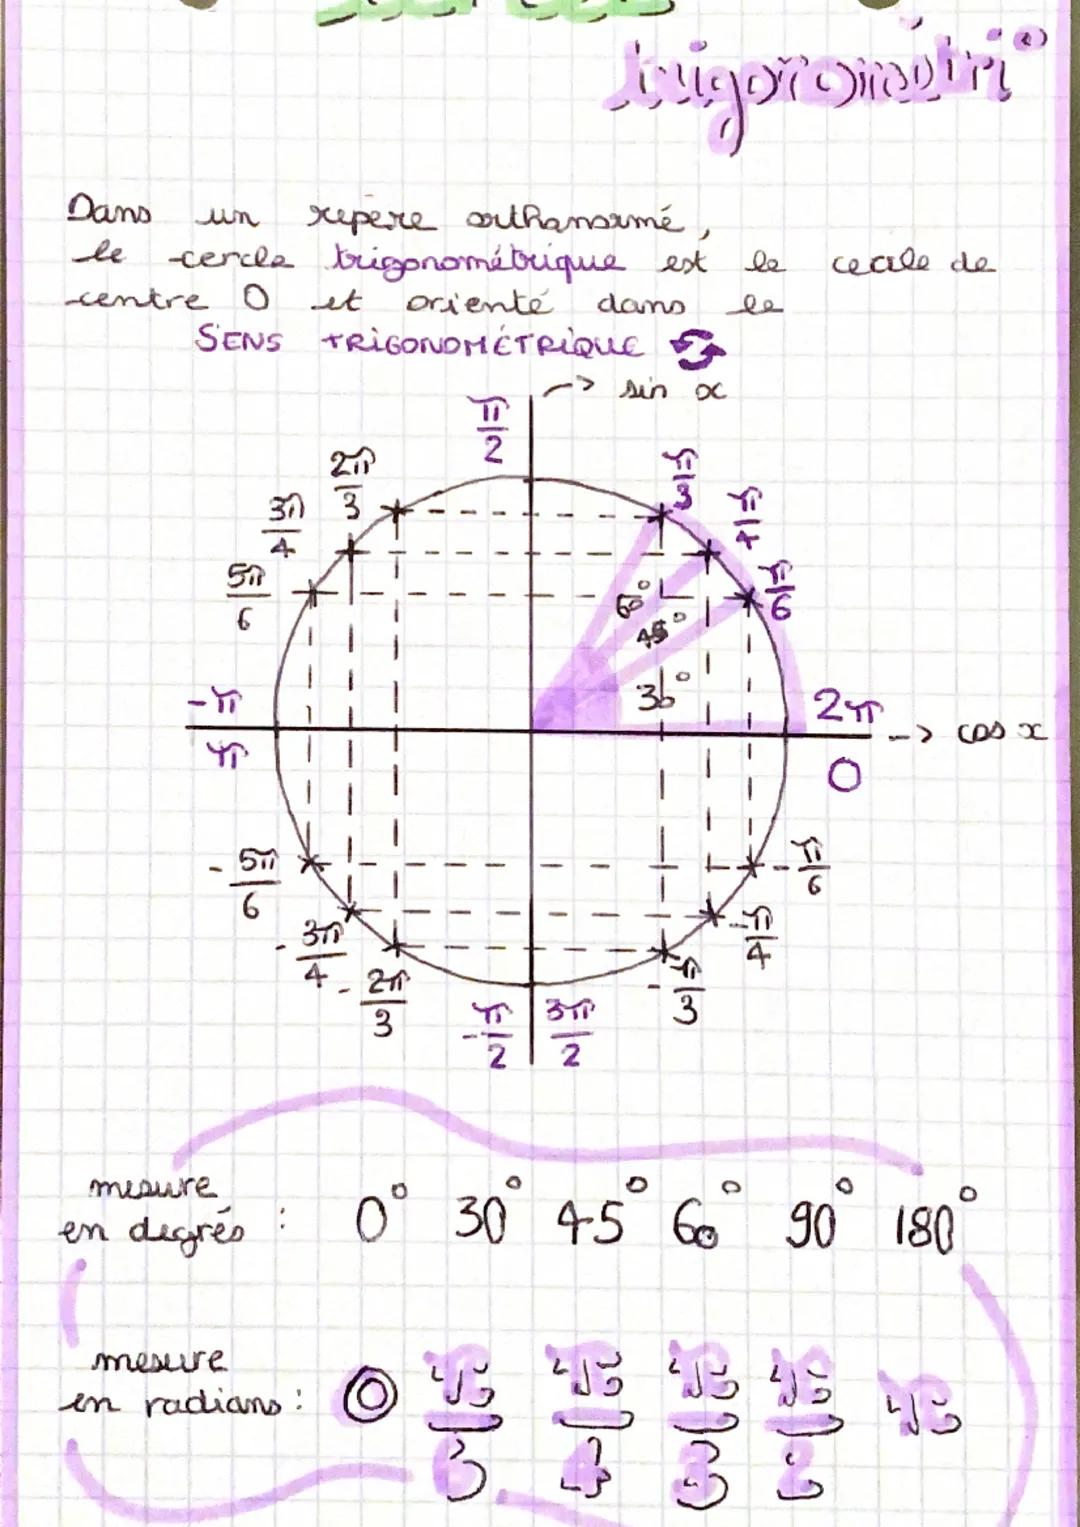 trigonométri(e)
Dans un repère orthonormé,
le cercle trigonométrique est le cercle de
centre O et orienté dans le
SENS TRIGONOMÉTRIQUE
-> sin x
π/2
2π/3
π/3
3π/4
π/4
5π/6
π/6
60°
45°
30°
-π
2π
-> cos x
π
0
-5π/6
-π/6
-3π/4
-π/4
-2π/3
-π/3
-π/2
3π/2
mesure
en degrés : 0° 30° 45° 60° 90° 180°
mesure
en radians : 0 π/6 π/4 π/3 π/2 π